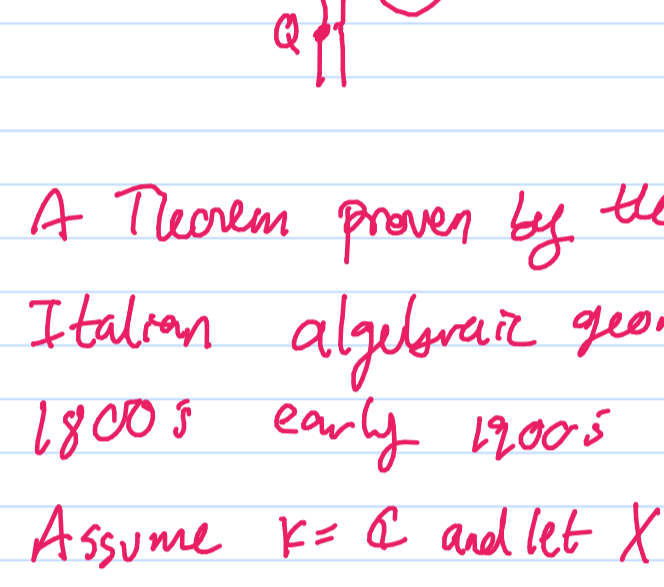 Q
A Theorem proven by the
Italian algebraic geo
1800s early 1900s
Assume k = ℂ and let X